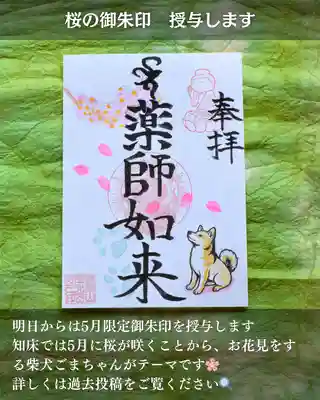 桜の御朱印　授与します
奉拝
薬師如来
明日からは5月限定御朱印を授与します
知床では5月に桜が咲くことから、お花見をす
る柴犬ごまちゃんがテーマです🌸
詳しくは過去投稿をご覧ください